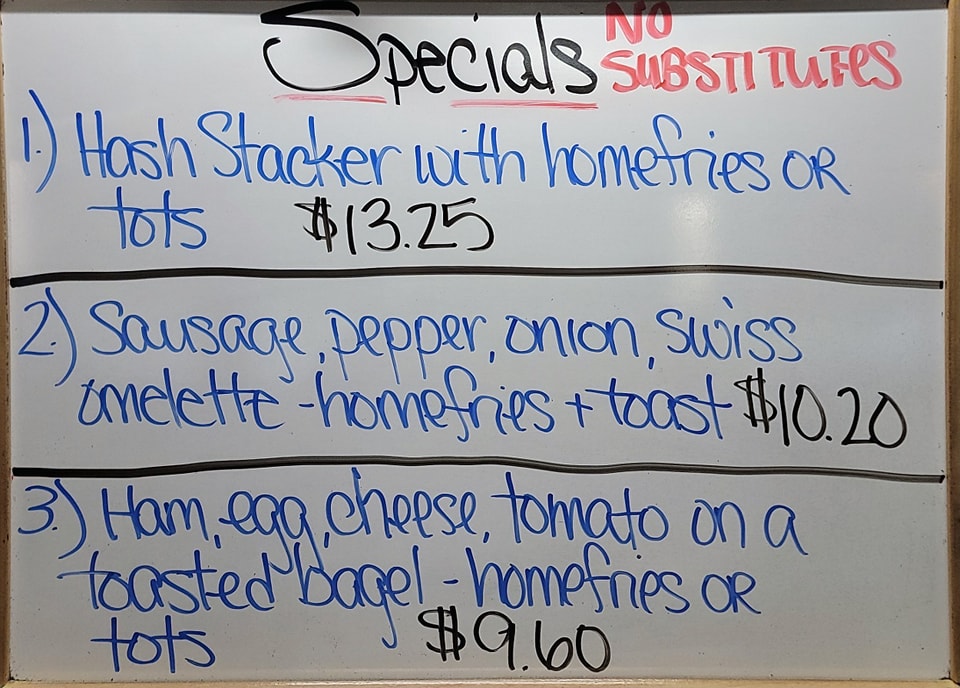 Specials NO
SUBSTITUTES
1.) Hash Stacker with homefries OR
tots $13.25
2.) Sausage, pepper, onion, swiss
omelette - homefries + toast $10.20
3.) Ham, egg, cheese, tomato on a
toasted bagel - homefries OR
tots $9.60